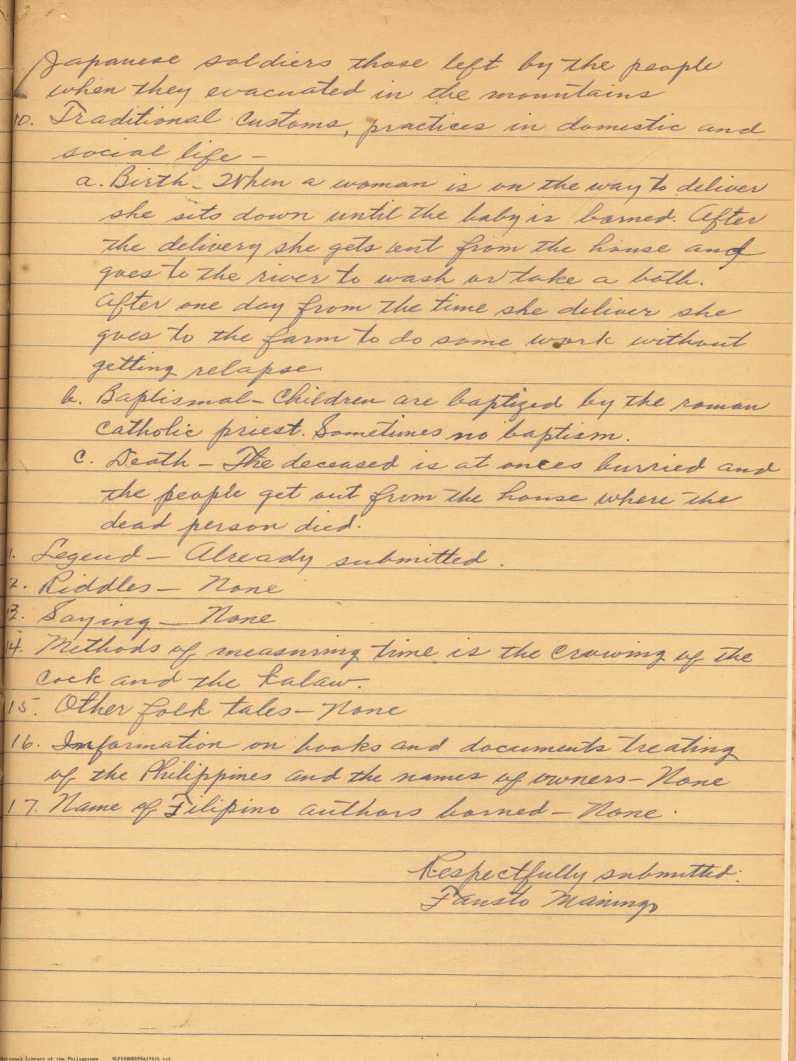 Japanese soldiers those left by the people
when they evacuated in the mountains
10. Traditional Customs, practices in domestic and
social life -
a. Birth - When a woman is on the way to deliver
she sits down until the baby is borned. After
the delivery she gets out from the house and
goes to the river to wash or take a bath.
After one day from the time she deliver she
goes to the farm to do some work without
getting relapse.
b. Baptismal - Children are baptized by the roman
Catholic priest. Sometimes no baptism.
c. Death - The deceased is at onces burried and
the people get out from the house where the
dead person died.
1. Legend - Already submitted.
2. Riddles - None
3. Saying - None
14. Methods of measuring time is the crowing of the
cock and the kalaw.
15. Other folk tales - None
16. Information on books and documents treating
of the Philippines and the names of owners - None
17. Name of Filipino authors borned - None.
Respectfully submitted:
Fausto
National Library of the Philippines